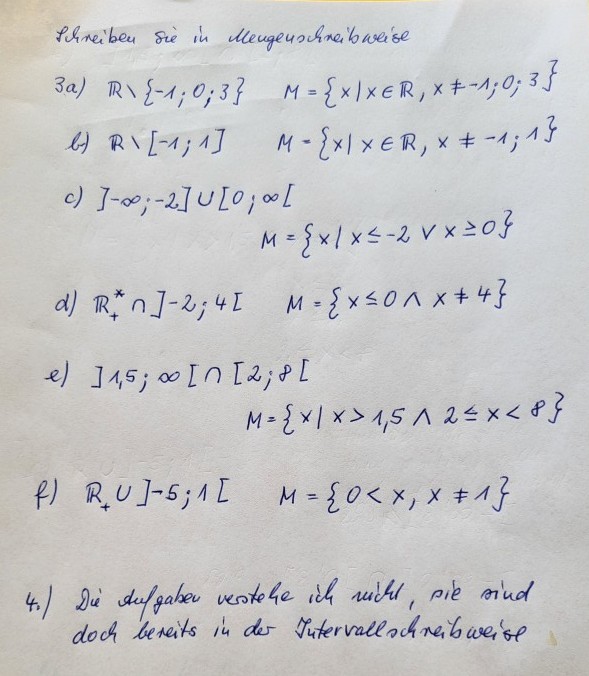 Schreiben Sie in Mengenschreibweise
3a) ℝ\{-1;0;3} M = {x|x∈ℝ, x≠-1;0;3}
b) ℝ\[-1;1] M = {x|x∈ℝ, x≠-1;1}
c) ]-∞;-2]∪[0;∞[
M = {x|x≤-2 ∨ x≥0}
d) ℝ₊* ∩ ]-2;4[ M = {x≤0 ∧ x≠4}
e) ]1,5;∞[∩[2;8[
M = {x|x>1,5 ∧ 2≤x<8}
f) ℝ₊∪]-5;1[ M = {0<x, x≠1}
4.) Die Aufgaben verstehe ich nicht, sie sind
doch bereits in der Intervallschreibweise